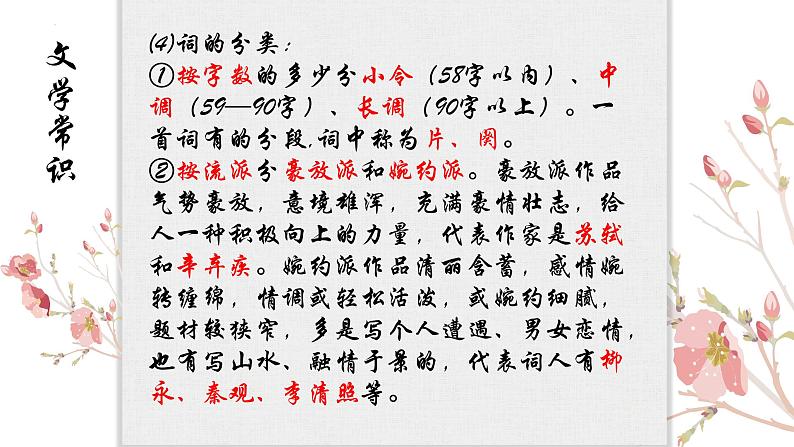 文学常识
(4)词的分类：
①按字数的多少分小令（58字以内）、中
调（59—90字）、长调（90字以上）。一
首词有的分段,词中称为片、阕。
②按流派分豪放派和婉约派。豪放派作品
气势豪放，意境雄浑，充满豪情壮志，给
人一种积极向上的力量，代表作家是苏轼
和辛弃疾。婉约派作品清丽含蓄，感情婉
转缠绵，情调或轻松活泼，或婉约细腻，
题材较狭窄，多是写个人遭遇、男女恋情，
也有写山水、融情于景的，代表词人有柳
永、秦观、李清照等。